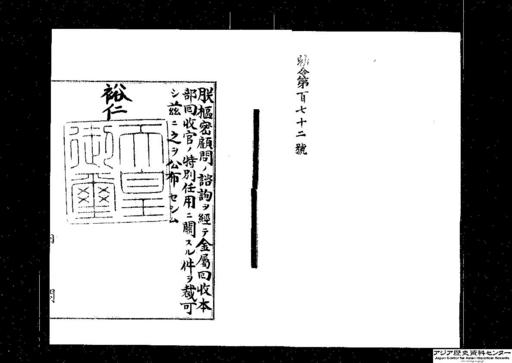 勅令第百七十二號
朕樞密顧問ノ諮詢ヲ經テ金屬回收本
部回收官ノ特別任用ニ關スル件ヲ裁可
シ茲ニ之ヲ公布セシム
裕仁
天皇
御璽
アジア歴史資料センター
Japan Center for Asian Historical Records